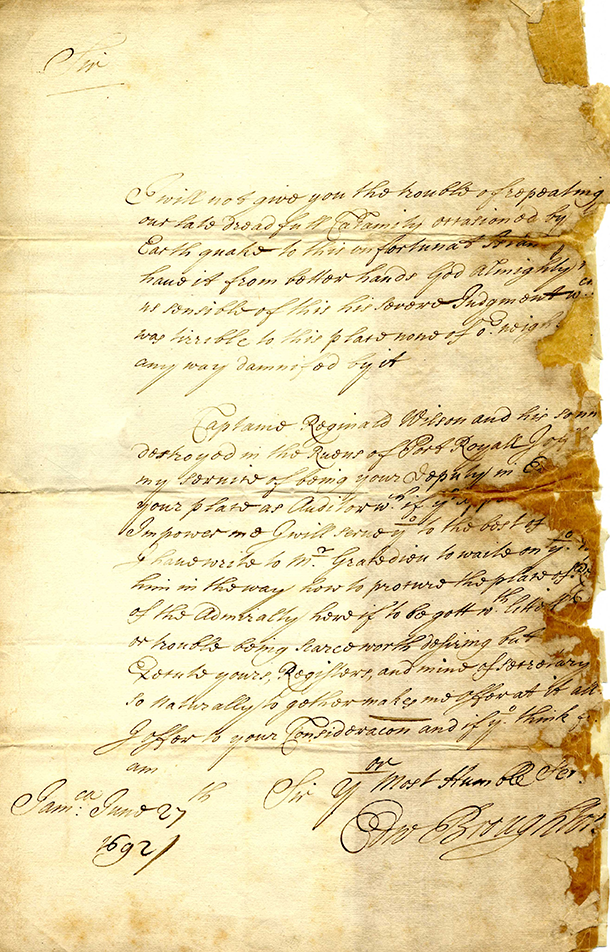 Sir
I will not give you the trouble of repeating
our late dreadfull Calamity occasioned by
Earth quake to this unfortunate
have it from better hands God Almighty
us sensible of this his severe Judgment wch
was tirrible to this place none of or neigh
any way damnifed by it
Captaine Reginald Wilson and his sonn
destroyed in the Ruens of Port Royall I of
my service of being your Deputy in
your place as Auditor wch if yo
Impower me I will serve yo to the best of
I have write to Mr Gratedieu to waite on yo
him in the way how to procure the place of
of the Admiralty here if to be gott wth little
or trouble being scarce worth desiring but
Execute yours, Registers, and mine of secretary
so naturally to gether makes me offer at it all
I offer to your Consideracon and if yo think
am
Sir Yor Most Humble Ser
Edw Broughton
Jamca: June 27th
1692